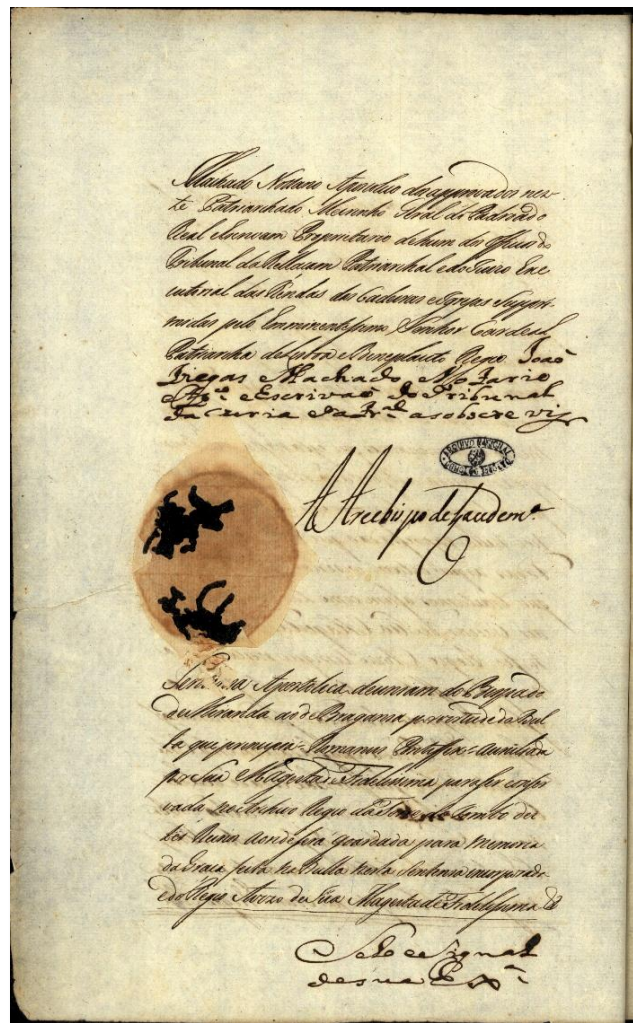 Machado Notario Apostolico dos approvados nes-
te Patriarchado Meirinho Geral do Padroado
Real e Escrivam Proprietario de hum dos Officios do
Tribunal da Rellaçam Patriarchal e do Juizo Exe
cutorial das Rendas das Cadeiras e Igrejas Suppri-
midas pelo Eminentissimo Senhor Cardeal
Patriarcha de Lisboa Beneplacito Regio João
Viegas Machado Notario
Ap.co e Escrivaõ do Tribunal
da Curia e a sobscrevy
ARQUIVO NACIONAL
A Arcebispo de Lacedem.a
Sentença Apostolica de uniam do Bispado
de Miranda ao de Bragansa por virtude da Bul
la que principia = Romanus Pontifex = auxiliada
por Sua Magestade Fidelissima para ser conser
vada no Archivo Regio da Torre do Tombo des
tes Reinos aonde será guardada para memoria
da Graça feita na Bulla nesta Sentensa encorporada
e do Regio Avizo de Sua Magestade Fidelissima
Sello e Signal
de sua Ex.a